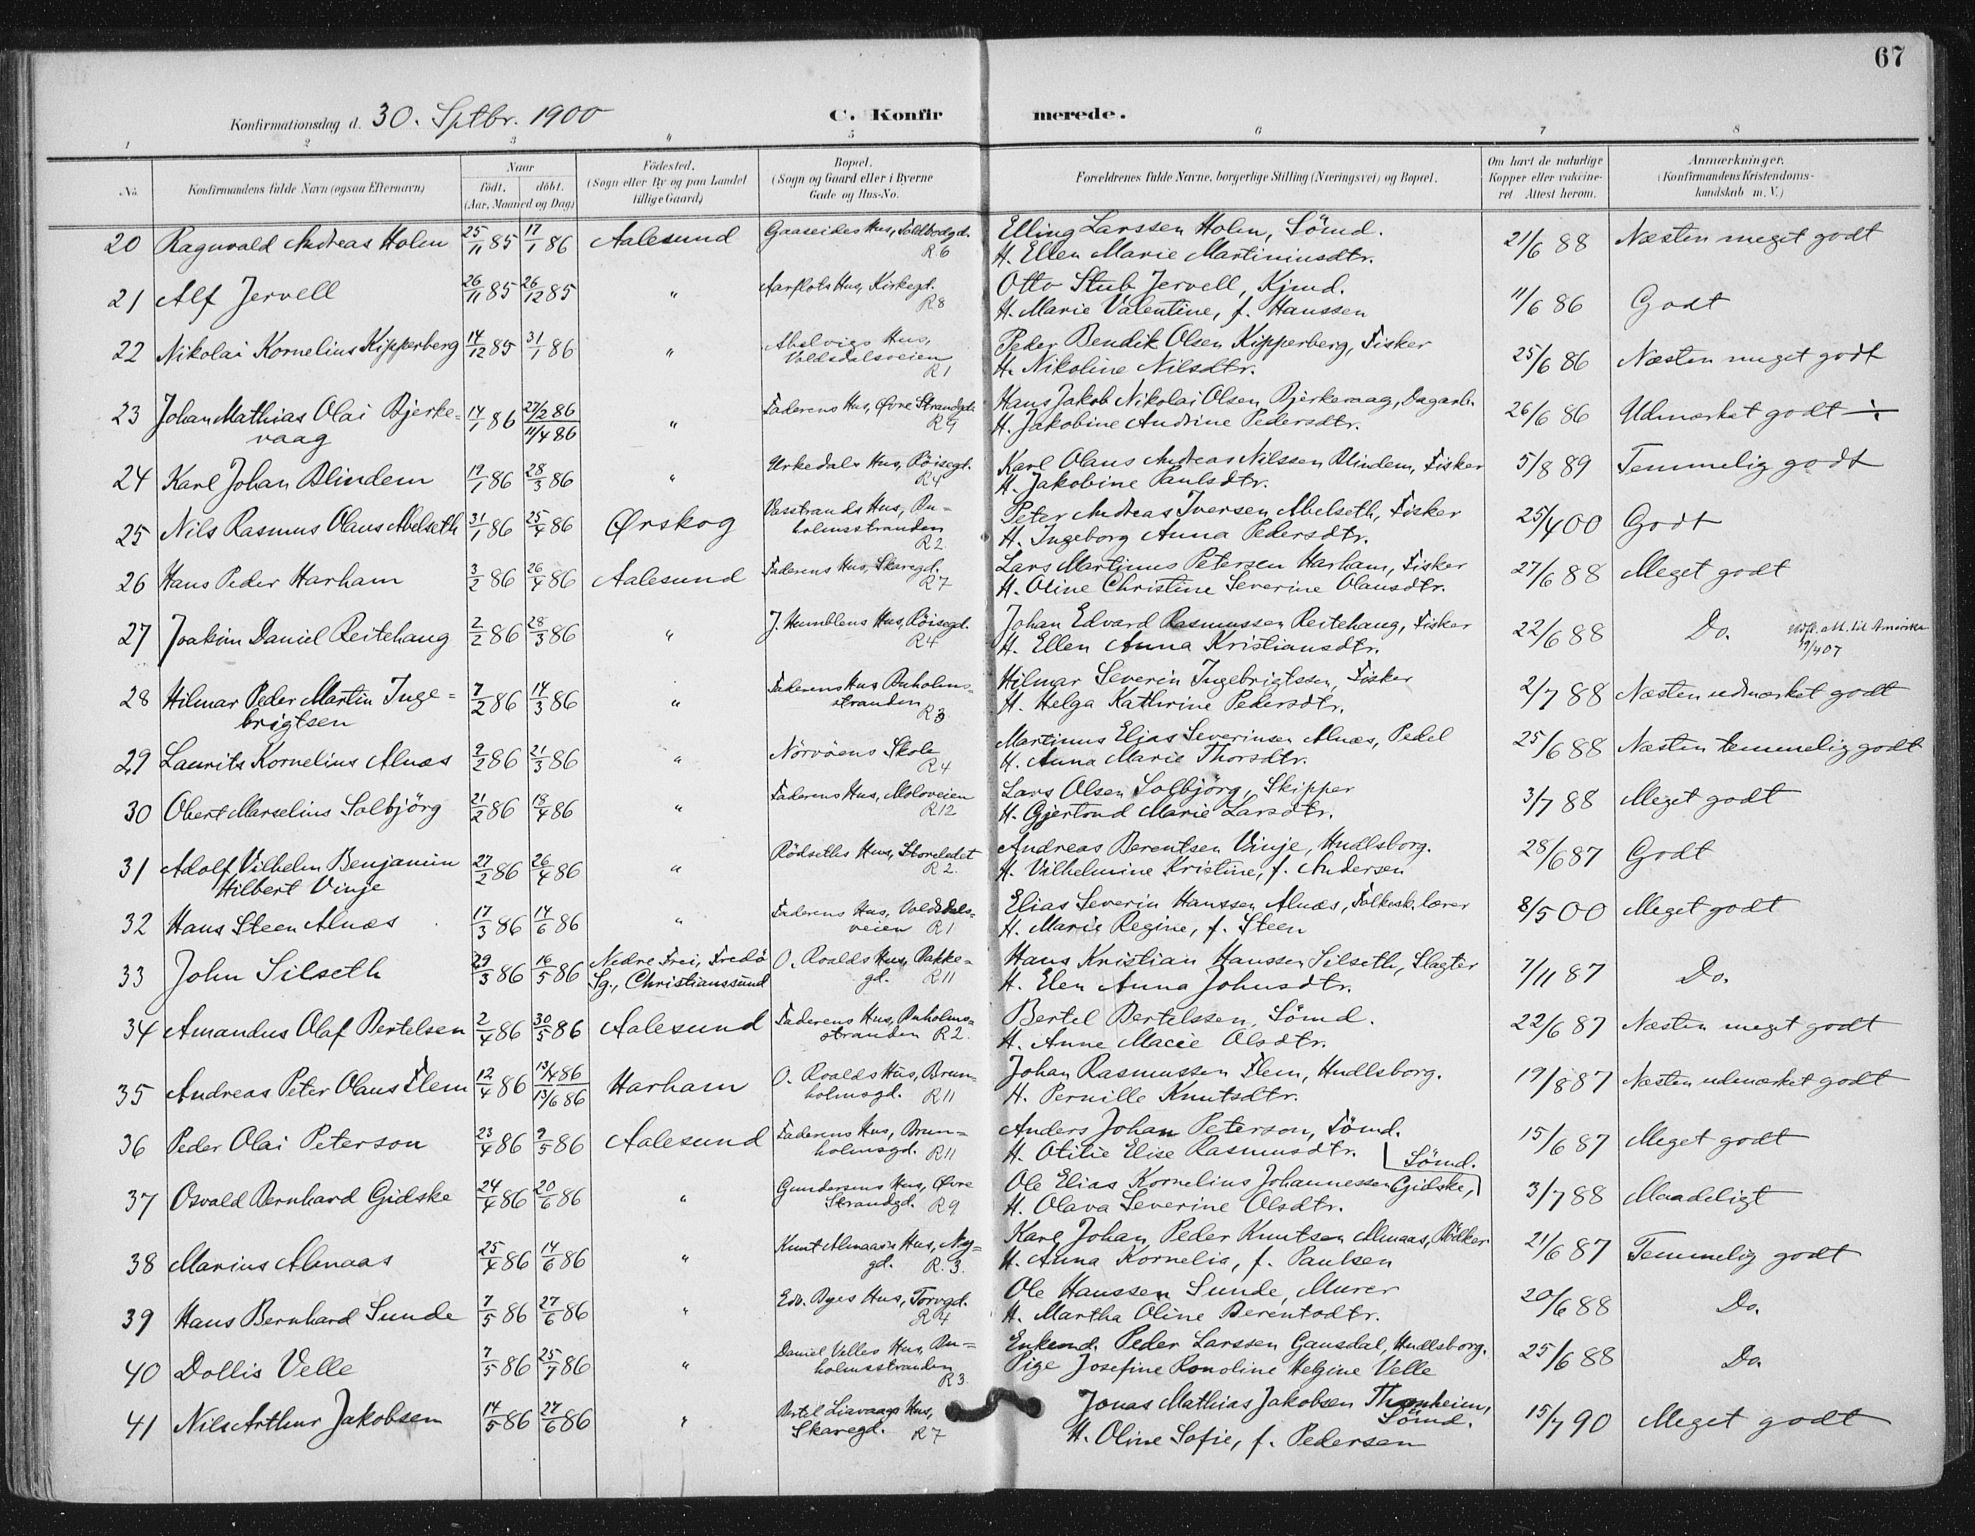 67
Konfirmationsdag d. 30. Sptbr. 1900 C. Konfirmerede.
1 2 3 4 5 6 7 8
No. Konfirmandens fulde Navn (ogsaa Efternavn) Naar født. døbt. (Aar, Maaned og Dag) Fødested. (Sogn eller By og paa Landet tillige Gaard) Bopæl. (Sogn og Gaard eller i Byerne Gade og Hus-No. Forældrenes fulde Navne, borgerlige Stilling (Næringsvei) og Bopæl. Om havt de naturlige Kopper eller vakcineret Attest herom. Anmærkninger. (Konfirmandens Kristendomskundskab m. V.)
20 Ragnvald Andreas Holm 25/11 85 17/1 86 Aalesund Gaaseides Hus, R6 Elling Larssen Holm, Sömd. 21/6 88 Næsten meget godt
H. Ellen Marie Martiniusdtr.
21 Alf Jervell 26/11 85 26/12 85 " Aarflots Hus, Kirkegt. R8 Otto Stub Jervell, Kjmd. 11/6 86 Godt
H. Marie Valentine, f. Hanssen
22 Nikolai Kornelius Kipperberg 14/12 85 31/1 86 " Abelvigs Hus, Voldsdalsveien R1 Peder Bendik Olsen Kipperberg, Fisker 25/6 86 Næsten meget godt
H. Nikoline Nilsdtr.
23 Johan Mathias Olai Bjerke= 14/1 86 27/2 86 11/4 86 " Faderens Hus, Øvre Strandgt. R9 Hans Jakob Nikolai Olsen Bjerkevaag, Dagarb. 26/6 86 Udmærket godt ÷
vaag H. Jakobine Andrine Pedersdtr.
24 Karl Johan Blindem 19/1 86 28/3 86 " Urkedals Hus, Röisegt. R4 Karl Olaus Andreas Nilssen Blindem, Fisker 5/8 89 Temmelig godt
H. Jakobine Paulsdtr.
25 Nils Rasmus Olaus Abelseth 31/1 86 25/4 86 Ørskog Vasstrands Hus, Bu=holmsstranden R2 Peter Andreas Iversen Abelseth, Fisker 25/4 00 Godt
H. Ingeborg Anna Pedersdtr.
26 Hans Peder Harham 3/2 86 26/4 86 Aalesund Faderens Hus, Skaregd. R7 Lars Martinus Petersen Harham, Fisker 27/6 88 Meget godt
H. Oline Christine Severine Olausdtr.
27 Joakim Daniel Reitehaug 2/2 86 28/3 86 " J. Humblens Hus, Röisegd. R4 Johan Edvard Rasmussen Reitehaug, Fisker 22/6 88 Do. Udfl. att. til Amerika 19/4 07
H. Ellen Anna Kristiansdtr.
28 Hilmar Peder Martin Inge= 7/2 86 14/3 86 " Faderens Hus Buholms=stranden R3 Hilmar Severin Ingebrigtssen, Fisker 2/7 88 Næsten udmærket godt
brigtsen H. Helga Kathrine Pedersdtr.
29 Laurits Kornelius Alnæs 9/2 86 21/3 86 " Nörvöens Skole R4 Martinus Elias Severinsen Alnæs, Pedel 25/6 88 Næsten temmelig godt
H. Anna Marie Thorsdtr.
30 Obert Marselius Solbjörg 21/2 86 18/4 86 " Faderens Hus, Moloveien R12 Lars Olsen Solbjörg, Skipper 3/7 88 Meget godt
H. Gjertrud Marie Larsdtr.
31 Adolf Vilhelm Benjamin 27/2 86 26/4 86 " Rödseths Hus, Storeledet R2. Andreas Berentsen Vinje, Hndlsborg. 28/6 87 Godt
Hilbert Vinje H. Vilhelmine Kristine, f. Andersen
32 Hans Steen Alnæs 17/3 86 14/6 86 " Faderens Hus, Voldsdals=veien R1 Elias Severin Hanssen Alnæs, Folkesk.lærer 8/5 00 Meget godt
H. Marie Regine, f. Steen
33 John Silseth 29/3 86 16/5 86 Nedre Frei, Fredö Sg., Christianssund O. Roalds Hus, Bakke=gd. R11 Hans Kristian Hanssen Silseth, Slagter 7/11 87 Do.
H. Elen Anna Johnsdtr.
34 Amandus Olaf Bertelsen 2/4 86 30/5 86 Aalesund Faderens Hus, Buholms=stranden R2. Bertel Bertelssen, Sömd. 22/6 87 Næsten meget godt
H. Anne Marie Olsdtr.
35 Andreas Peter Olaus Flem 12/4 86 13/4 86 13/6 86 Harham O. Roalds Hus, Brun=holmsgd. R11 Johan Rasmussen Flem, Hndlsborg. 19/8 87 Næsten udmærket godt
H. Pernille Knutsdtr.
36 Peder Olai Peterson 23/4 86 9/5 86 Aalesund Faderens Hus, Brun=holmsgd. R11 Anders Johan Peterson, Sömd. 15/6 87 Meget godt
H. Otilie Elise Rasmusdtr.
37 Osvald Bernhard Gidske 24/4 86 20/6 86 " Gundersens Hus, Øvre Strandgd. R9 Ole Elias Kornelius Johannessen Gidske, Sömd. 3/7 88 Maadeligt
H. Olava Severine Olsdtr.
38 Marius Almaas 25/4 86 14/6 86 " Knut Almaas's Hus, Ny=gd. R.3. Karl Johan Peder Knutsen Almaas, Bödker 21/6 87 Temmelig godt
H. Anna Kornelia, f. Paulsen
39 Hans Bernhard Sunde 7/5 86 27/6 86 " Edv. Byes Hus, Torvgd. R4 Ole Hanssen Sunde, Murer 20/6 88 Do.
H. Martha Oline Berentsdtr.
40 Dollis Velle 7/5 86 25/7 86 " Daniel Velles Hus, Bu=holmsstranden R3. Enkemd. Peder Larssen Gausdal, Hndlsborg. 25/6 88 Do
Pige Josefine Ronoline Helgine Velle
41 Nils Arthur Jakobsen 14/5 86 27/6 86 " Bertel Liavaags Hus, Skaregd. R7 Jonas Mathias Jakobsen Thonheim, Sömd. 15/7 90 Meget godt
H. Oline Sofie, f. Pedersen